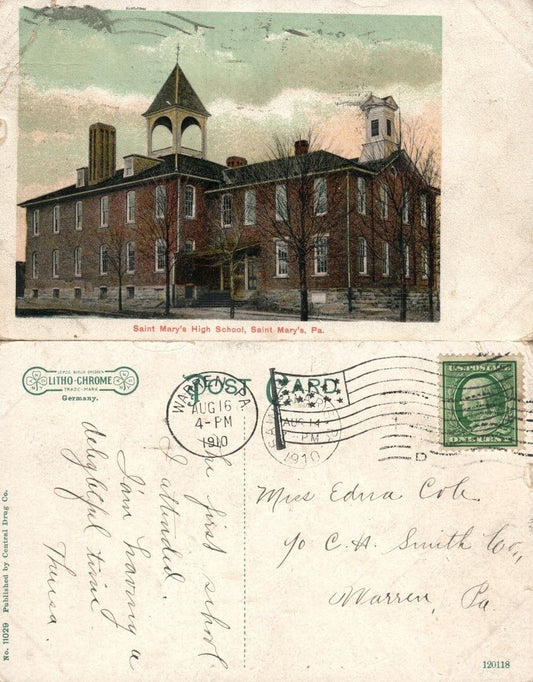 Saint Mary's High School, Saint Mary's, Pa.
LEIPZIG BERLIN DRESDEN
LITHO-CHROME
TRADE-MARK
Germany.
POST CARD
WARREN, PA.
AUG 16
4-PM
1910
AUG 14
PM
1910
U.S. POSTAGE
ONE CENT
The first school
I attended.
I'm having a
delightful time
Theresa.
Miss Edna Cole
℅ C. H. Smith Co.,
Warren, Pa
No. 11029 Published by Central Drug Co.
120118